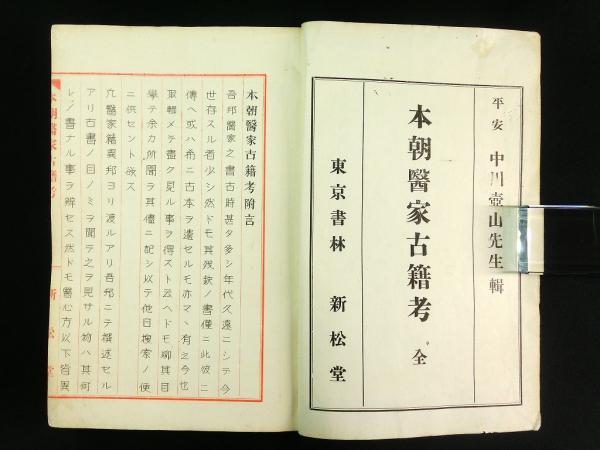 平安 中川壺山先生輯
本朝醫家古籍考 全
東京書林 新松堂
本朝醫家古籍考附言
吾邦醫家之書古時甚タ多シ年代久遠ニシテ今
世存スル者少シ然ドモ其残欽ノ書僅ニ此彼ニ
傳ヘ或ハ希ニ古本ヲ遺セルモ亦マヽ有之今也
取輯メテ盡ク見ル事ヲ得スト云ヘドモ聊其目
擧テ余カ所聞ヲ其儘ニ記シ以テ他日捜索ノ便
ニ供セント欲ス
醫家籍異邦ヨリ渡ルアリ吾邦ニテ撰述セル
アリ古書ノ目ノミヲ聞テ之ヲ見サル物ハ其何
レノ書ナル事ヲ辨セス然ドモ醫心方以下皆異
本朝醫家古籍考
新松堂